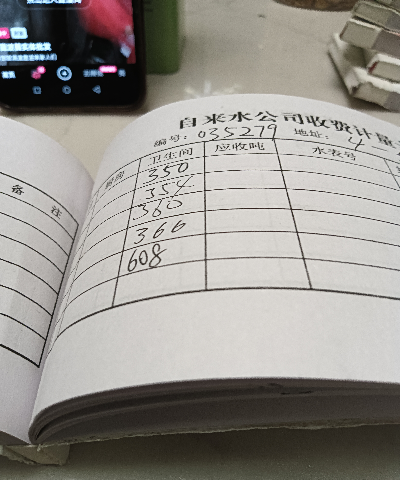 自来水公司收费计量
编号：035279 地址：4
备注
时间 卫生间 应收吨 水表号
350
354
360
366
608